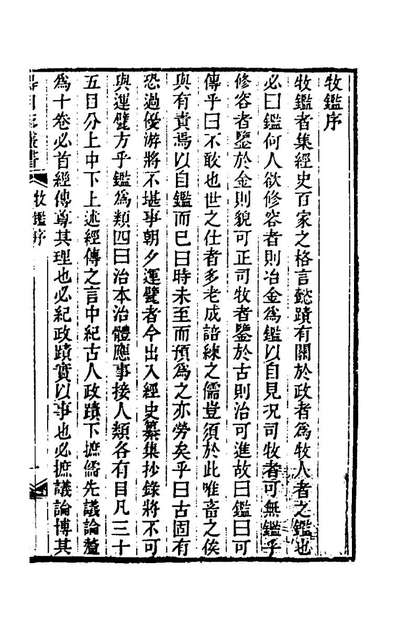 牧鑑序
牧鑑者集經史百家之格言懿蹟有關於政者為牧人者之鑑也
必曰鑑何人欲修容者則冶金為鑑以自見況司牧者可無鑑乎
修容者鑒於金則貌可正司牧者鑒於古則治可進故曰鑑曰可
傳乎曰不敢也世之仕者多老成諳練之儒豈須於此唯吝之俟
與有責焉以自鑑而已曰時未至而預為之亦勞矣乎曰古固有
恐過優游將不堪事朝夕運甓者今出入經史纂集抄錄將不可
與運甓方乎鑑為類四曰治本治體應事接人類各有目凡三十
五目分上中下上述經傳之言中紀古人政蹟下摭儒先議論釐
為十卷必首經傳尊其理也必紀政蹟實以事也必摭議論博其
牧鑑序